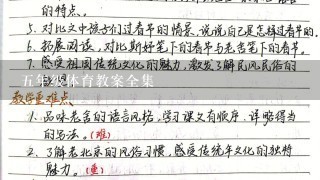 的特点。
5. 对比文中孩子们过春节的情景,说说自己是怎样过春节的。
6. 拓展阅读,对比斯好笔下的春节与老舍笔下的春节。
7. 感受祖国传统文化的魅力,激发了解民风民俗的
五年级体育教案全集
教学重难点
1. 品味老舍的语言风格,学习课文有顺序、详略得当
的写法。(难)
2. 了解老北京的风俗习惯,感受传统年文化的独特
魅力。(重)